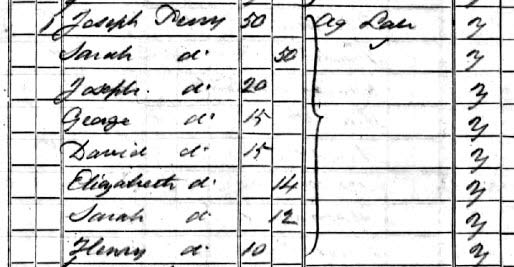 1 Joseph Perry 50 Ag Lab y
Sarah do 50 y
Joseph. do 20 y
George do 15 y
David do 15 y
Elizabeth do 14 y
Sarah do 12 y
Henry do 10 y